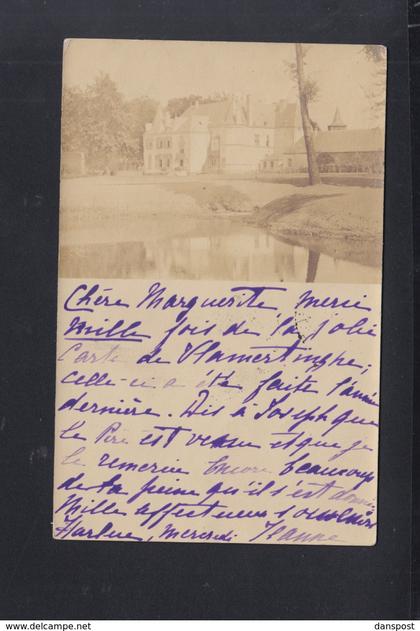 Chère Marguerite, merci
mille fois de la jolie
carte de Vlamertinghe;
celle-ci a été faite l'année
dernière. Dis à Joseph que
le Père est venu et que je
le remercie encore beaucoup
de la peine qu'il s'est donnée
Mille affectueux souvenirs
mercredi Jeanne
danspost
www.delcampe.net